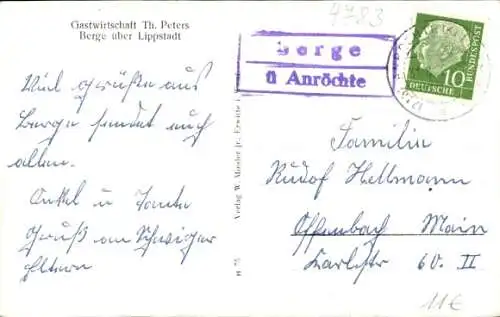 Gastwirtschaft Th. Peters
Berge über Lippstadt
4783
Berge
ü Anröchte
DEUTSCHE BUNDESPOST
10
Viel grüße aus
Berge sendet euch
allen.
Onkel u Tante
Gruß an Schwiger
Eltern
Verlag W. Mander jr., Erwitte i.
Familie
Rudolf Hellmann
Offenbach Main
Karlstr 60. II
11€